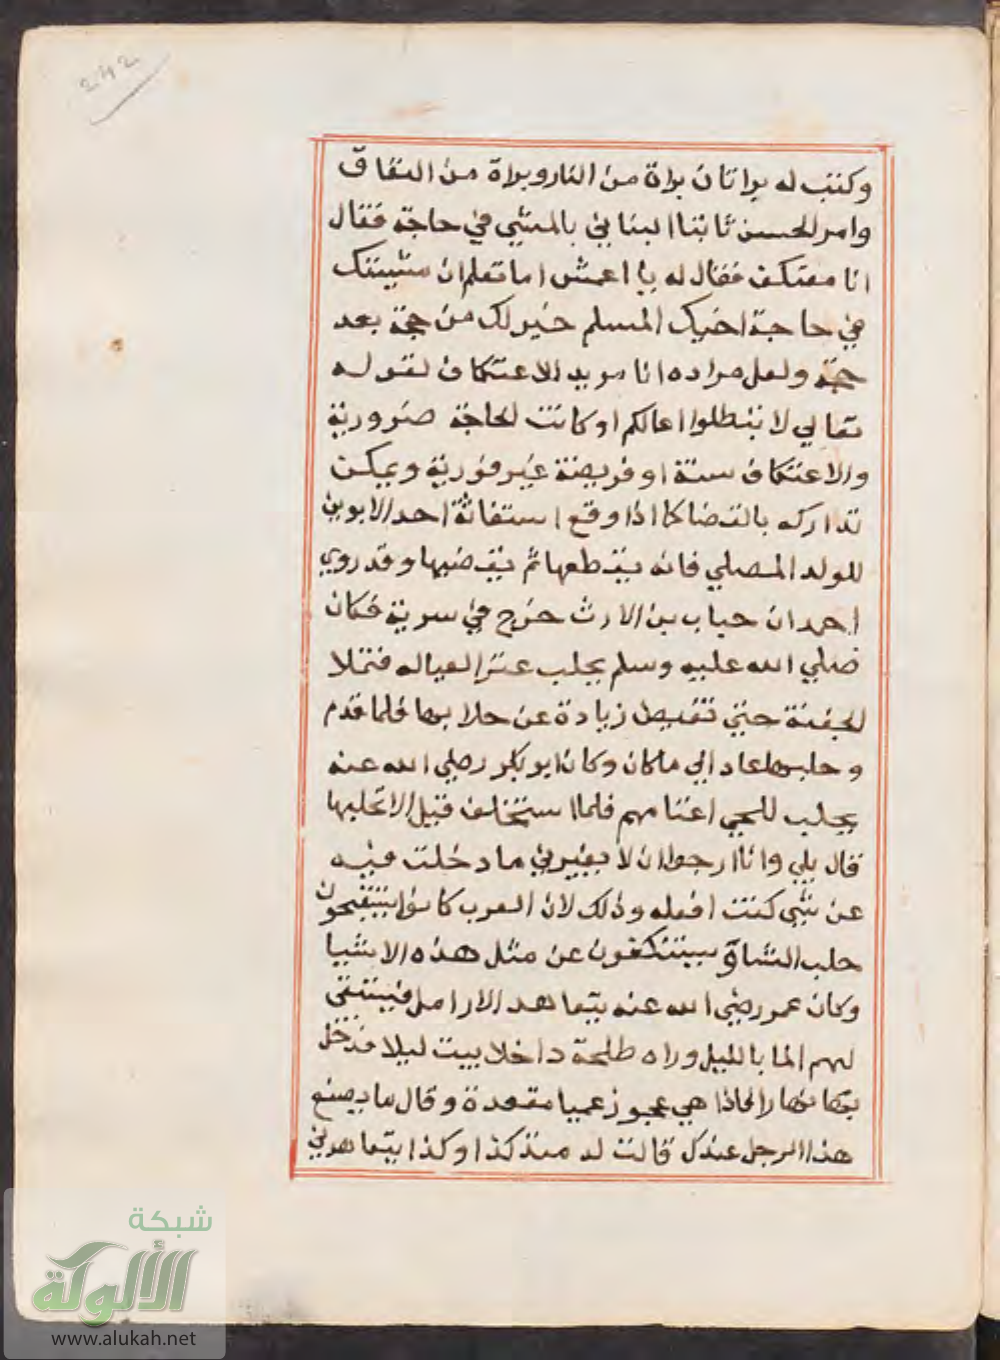 242
وكتب له براتان براة من النار وبراة من النفاق
وامر الحسن ثابتا البناني بالمشي في حاجة فقال
انا معتكف فقال له يا اعمش اما تعلم ان مشيتك
في حاجة اخيك المسلم خير لك من حجة بعد
حجة ولعل مراده انا مريد الاعتكاف لقوله
تعالي لا تبطلوا اعمالكم او كانت الحاجة ضرورية
والاعتكاف سنة او فريضة غير فورية ويمكن
تداركه بالقضا كما اذا وقع استغاثة احد الابوين
للولد المصلي فانه يقطعها ثم يقضيها وقد روي
احمد ان خباب بن الارث خرج في سرية فكان
صلي الله عليه وسلم يحلب عنزا لعياله فتملا
الجفنة حتي تفيض زيادة عن حلابها فلما قدم
وحلبها عاد الي ما كان وكان ابو بكر رضي الله عنه
يحلب للحي اغنامهم فلما استخلف قيل الا تحلبها
قال بلي وانا ارجوا ان لا يغيرني ما دخلت فيه
عن شي كنت افعله وذلك لان العرب كانوا يستقبحون
حلب النساء يستنكفون عن مثل هذه الاشيا
وكان عمر رضي الله عنه يتعاهد الارامل فيستقي
لهم الما بالليل وراه طلحة داخلا بيت ليلا فدخل
نهارا فاذا هي عجوز عميا مقعدة وقال ما يصنع
هذا الرجل عندك قالت له منذ كذا وكذا يتعاهدني
شبكة
الألوكة
www.alukah.net